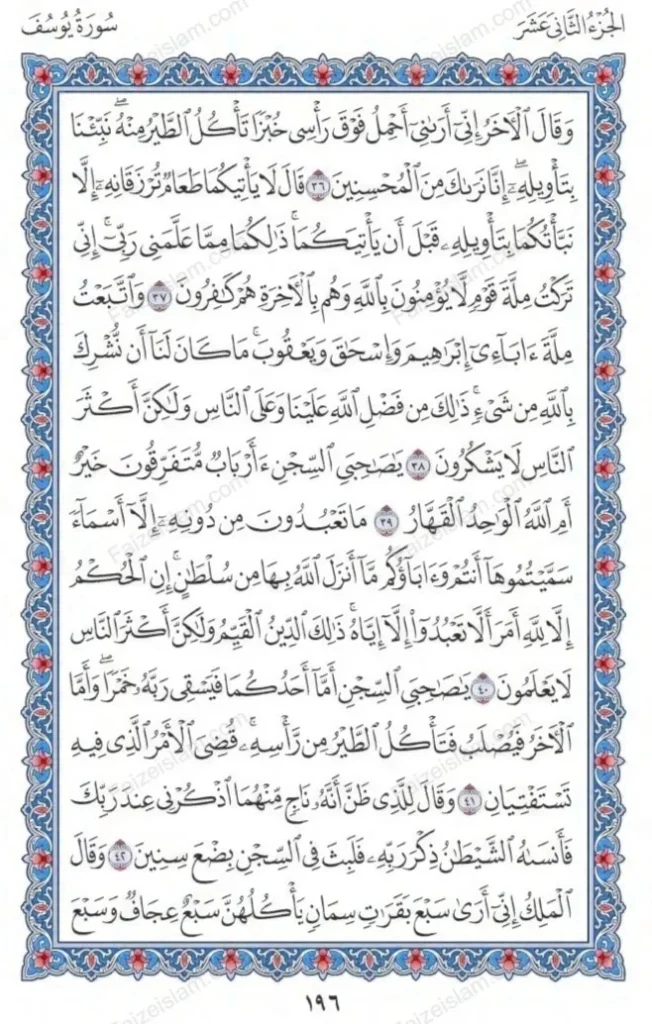 الجُزْءُ الثَّانِى عَشَرَ
سُورَةُ يُوسُفَ
وَقَالَ ٱلْأٓخَرُ إِنِّىٓ أَرَىٰنِىٓ أَحْمِلُ فَوْقَ رَأْسِى خُبْزًا تَأْكُلُ ٱلطَّيْرُ مِنْهُ ۖ نَبِّئْنَا
بِتَأْوِيلِهِۦٓ ۖ إِنَّا نَرَىٰكَ مِنَ ٱلْمُحْسِنِينَ ٣٦ قَالَ لَا يَأْتِيكُمَا طَعَامٌ تُرْزَقَانِهِۦٓ إِلَّا
نَبَّأْتُكُمَا بِتَأْوِيلِهِۦ قَبْلَ أَن يَأْتِيَكُمَا ۚ ذَٰلِكُمَا مِمَّا عَلَّمَنِى رَبِّىٓ ۚ إِنِّى
تَرَكْتُ مِلَّةَ قَوْمٍ لَّا يُؤْمِنُونَ بِٱللَّهِ وَهُم بِٱلْأٓخِرَةِ هُمْ كَٰفِرُونَ ٣٧ وَٱتَّبَعْتُ
مِلَّةَ ءَابَآءِىٓ إِبْرَٰهِيمَ وَإِسْحَٰقَ وَيَعْقُوبَ ۚ مَا كَانَ لَنَآ أَن نُّشْرِكَ
بِٱللَّهِ مِن شَىْءٍ ۚ ذَٰلِكَ مِن فَضْلِ ٱللَّهِ عَلَيْنَا وَعَلَى ٱلنَّاسِ وَلَٰكِنَّ أَكْثَرَ
ٱلنَّاسِ لَا يَشْكُرُونَ ٣٨ يَٰصَىٰحِبَىِ ٱلسِّجْنِ ءَأَرْبَابٌ مُّتَفَرِّقُونَ خَيْرٌ
أَمِ ٱللَّهُ ٱلْوَٰحِدُ ٱلْقَهَّارُ ٣٩ مَا تَعْبُدُونَ مِن دُونِهِۦٓ إِلَّآ أَسْمَآءً
سَمَّيْتُمُوهَآ أَنتُمْ وَءَابَآؤُكُم مَّآ أَنزَلَ ٱللَّهُ بِهَا مِن سُلْطَٰنٍ ۚ إِنِ ٱلْحُكْمُ
إِلَّا لِلَّهِ ۚ أَمَرَ أَلَّا تَعْبُدُوٓا۟ إِلَّآ إِيَّاهُ ۚ ذَٰلِكَ ٱلدِّينُ ٱلْقَيِّمُ وَلَٰكِنَّ أَكْثَرَ ٱلنَّاسِ
لَا يَعْلَمُونَ ٤٠ يَٰصَىٰحِبَىِ ٱلسِّجْنِ أَمَّآ أَحَدُكُمَا فَيَسْقِى رَبَّهُۥ خَمْرًا ۖ وَأَمَّا
ٱلْأٓخَرُ فَيُصْلَبُ فَتَأْكُلُ ٱلطَّيْرُ مِن رَّأْسِهِۦ ۚ قُضِىَ ٱلْأَمْرُ ٱلَّذِى فِيهِ
تَسْتَفْتِيَانِ ٤١ وَقَالَ لِلَّذِى ظَنَّ أَنَّهُۥ نَاجٍ مِّنْهُمَا ٱذْكُرْنِى عِندَ رَبِّكَ
فَأَنسَىٰهُ ٱلشَّيْطَٰنُ ذِكْرَ رَبِّهِۦ فَلَبِثَ فِى ٱلسِّجْنِ بِضْعَ سِنِينَ ٤٢ وَقَالَ
ٱلْمَلِكُ إِنِّىٓ أَرَىٰ سَبْعَ بَقَرَٰتٍ سِمَانٍ يَأْكُلُهُنَّ سَبْعٌ عِجَافٌ وَسَبْعَ
١٩٦
Faizeislam.com